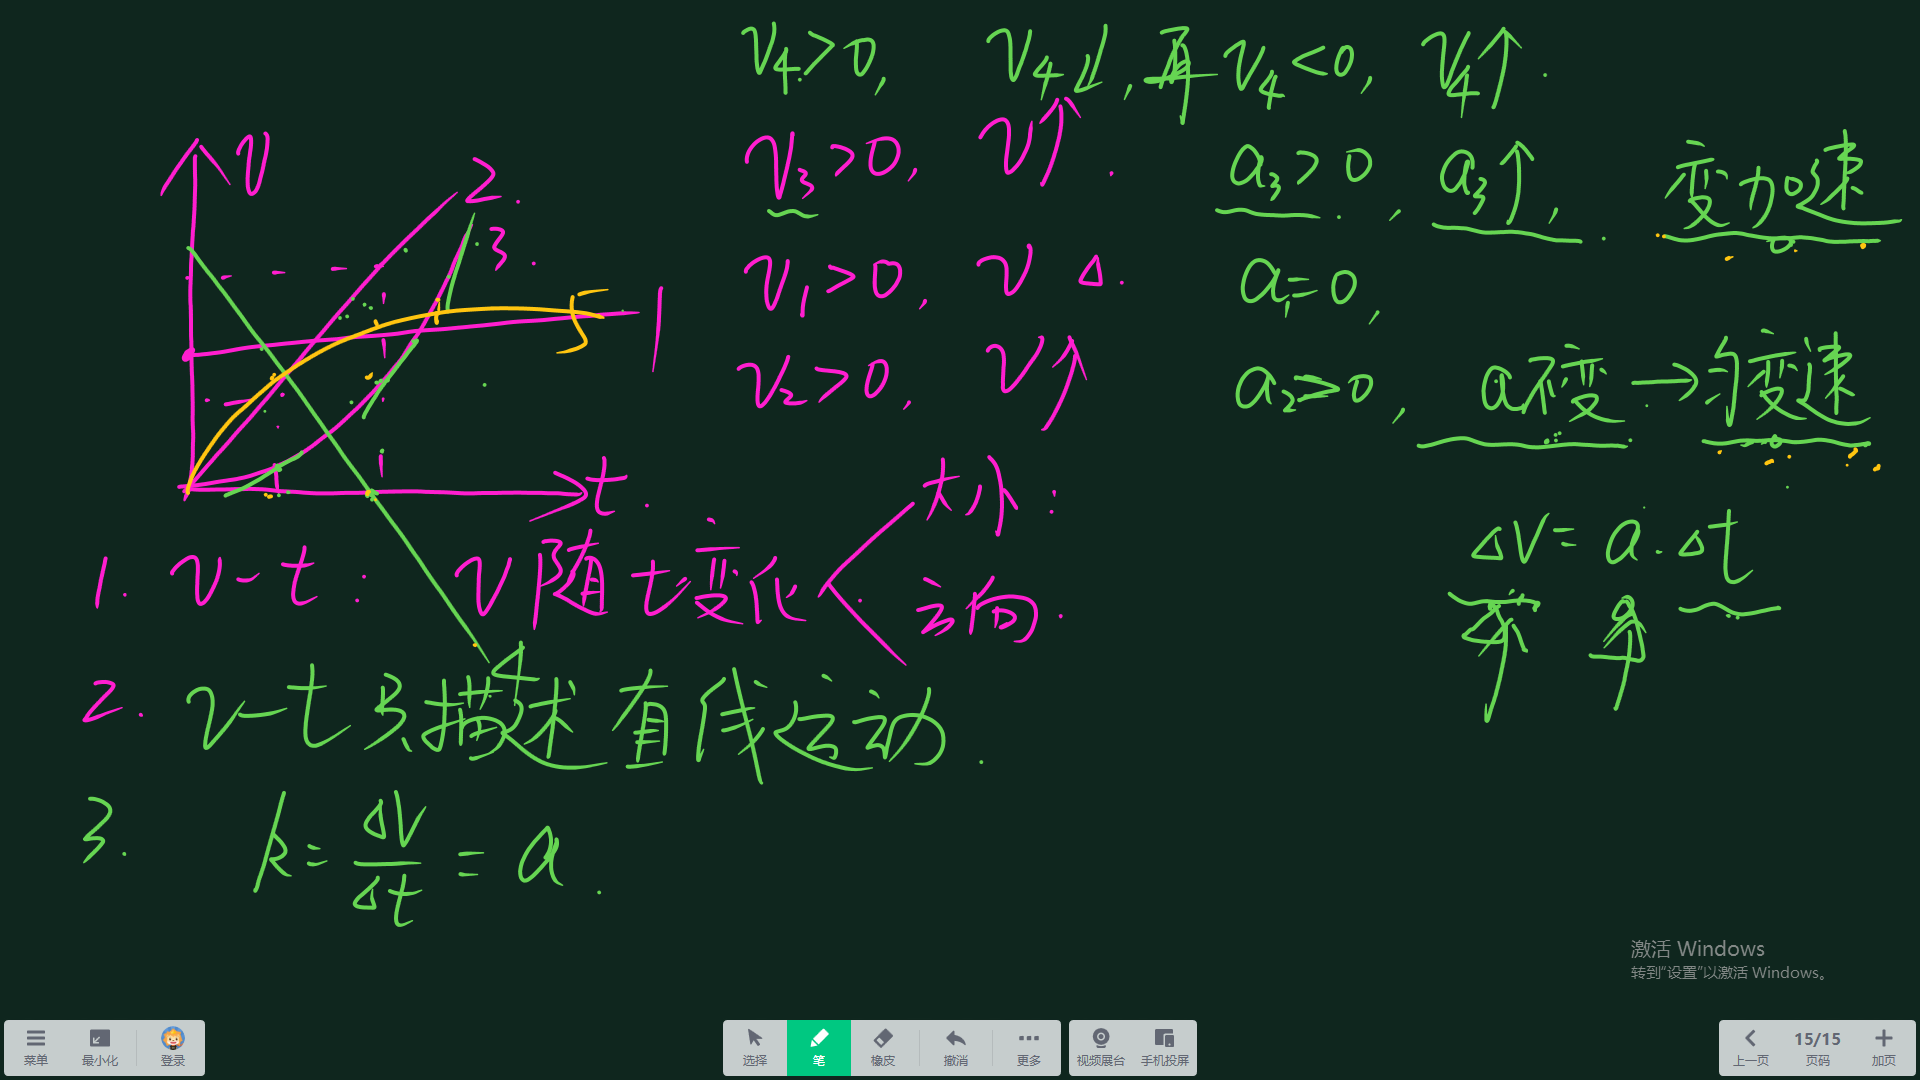 v₄>0, v₄↓, 再 v₄<0, v₄↑.
v₃>0, v↑. a₃>0, a₃↑, 变加速
v₁>0, v △. a₁=0,
v₂>0, v↑ a₂>0, a不变→匀变速
v
2.
3.
5
1
t.
4
ΔV=a.Δt
1. v-t: v随t变化 大小:
方向.
2. v-t只描述直线运动.
3. k=ΔV/Δt=a.
激活 Windows
转到“设置”以激活 Windows。
菜单 最小化 登录 选择 笔 橡皮 撤消 更多 视频展台 手机投屏 上一页 15/15 页码 加页